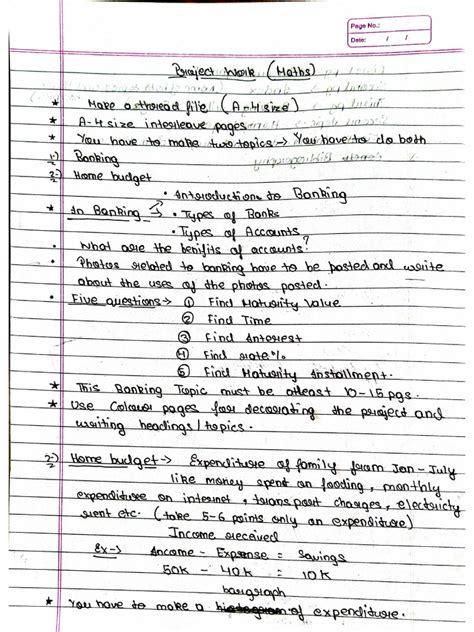 Page No.:
Date: / /
Project Work (Maths)
* Make a thread file (A-4 size)
* A-4 size interleave pages
* You have to make two topics → You have to do both
1:) Banking
2:) Home budget
• Introduction to Banking
* In Banking → • Types of Banks
• Types of Accounts
• What are the benifits of accounts?
• Photos related to banking have to be posted and write
about the uses of the photos posted.
• Five questions → ① Find Maturity Value
② Find Time
③ Find Interest
④ Find rate %
⑤ Find Maturity Installment.
* This Banking Topic must be atleast 10-15 pgs.
* Use Colour pages for decorating the project and
writing headings/topics.
2:) Home budget → Expenditure of family from Jan - July
like money spent on fooding, monthly
expenditure on internet, transport charges, electricty
rent etc. (take 5-6 points only on expenditure)
Income received
Ex → Income - Expense = Savings
50K - 40K = 10K
bargraph
* You have to make a of expenditure.